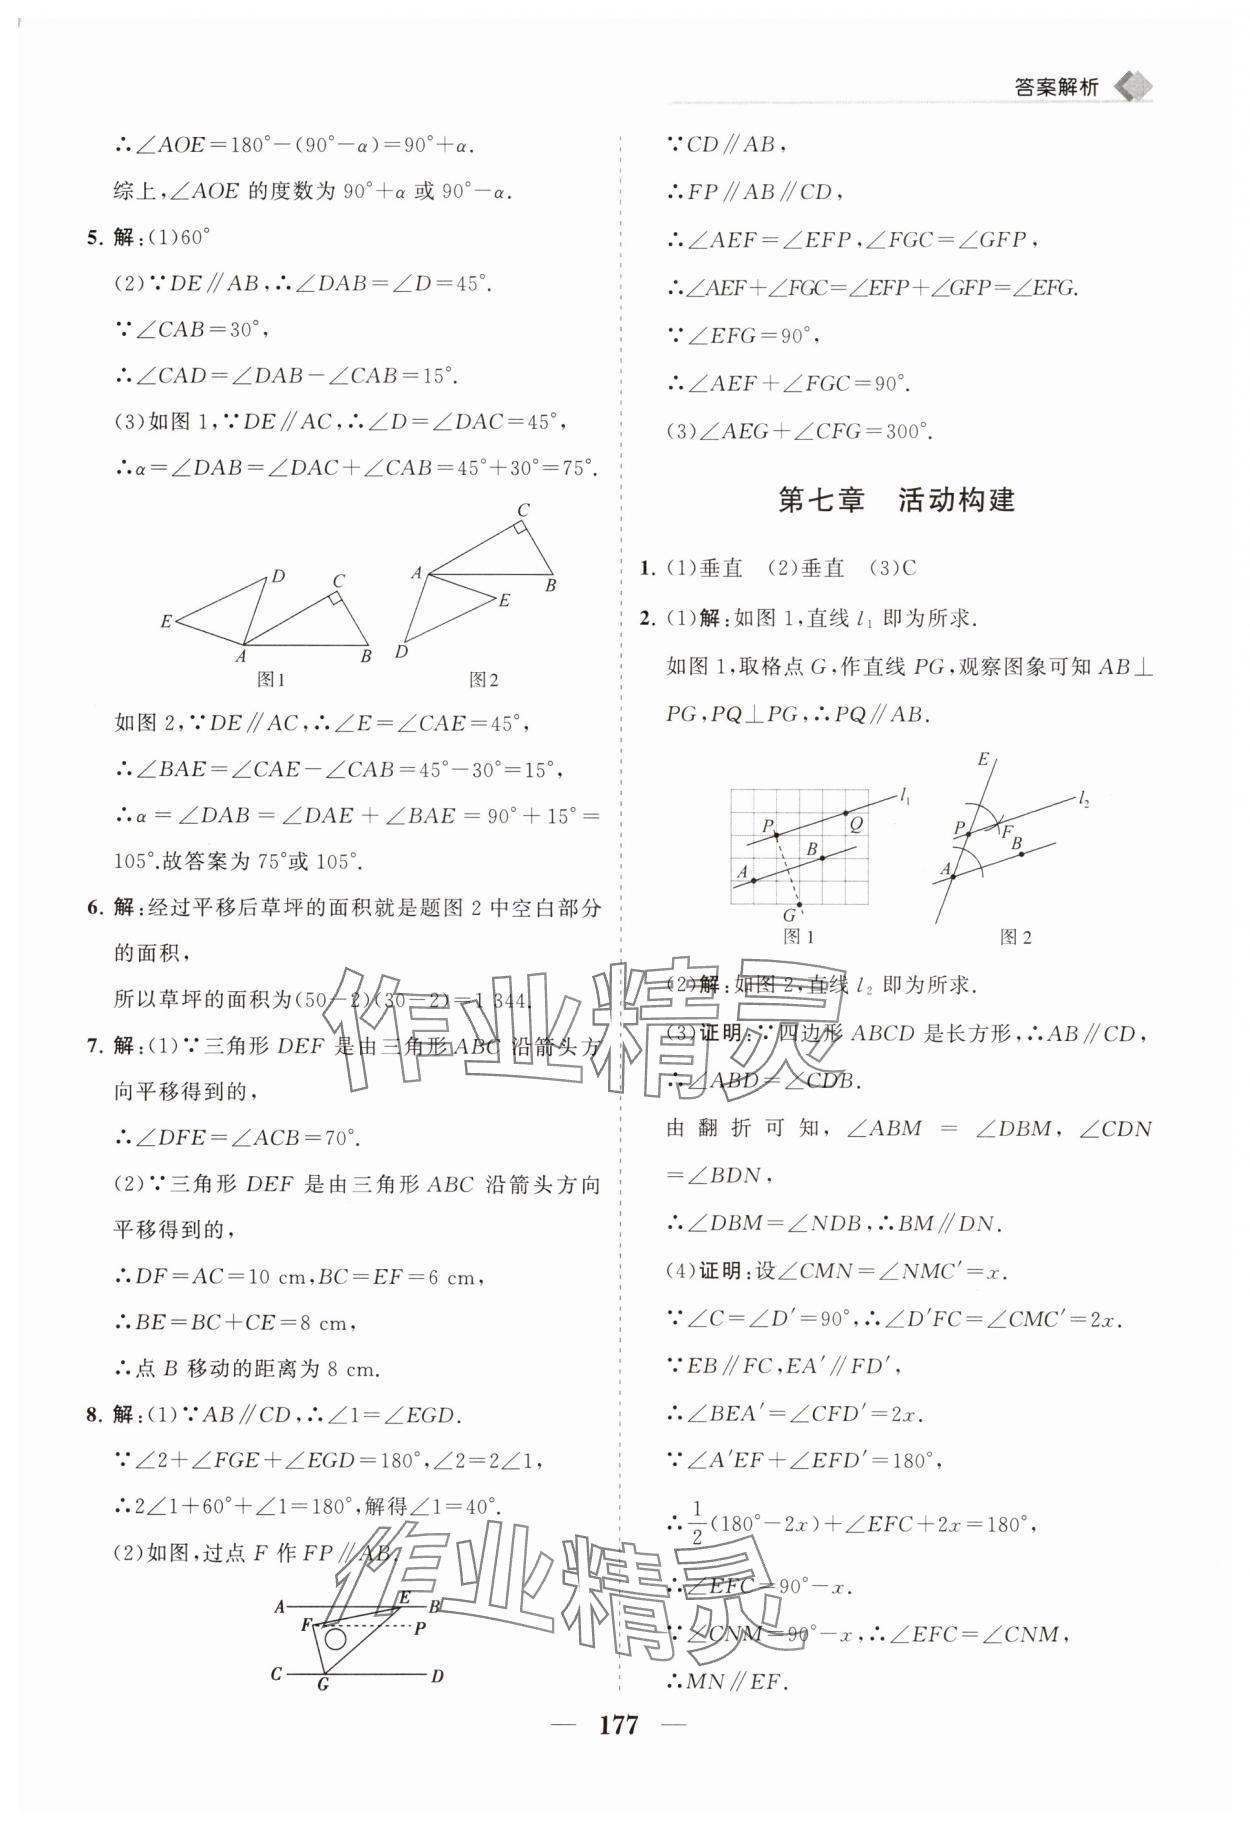 答案解析
∴∠AOE=180°-(90°-α)=90°+α.
综上,∠AOE 的度数为 90°+α 或 90°-α.
5. 解:(1)60°
(2)∵DE∥AB,∴∠DAB=∠D=45°.
∵∠CAB=30°,
∴∠CAD=∠DAB-∠CAB=15°.
(3)如图 1,∵DE∥AC,∴∠D=∠DAC=45°,
∴α=∠DAB=∠DAC+∠CAB=45°+30°=75°.
E D C A B
图1
C A B E D
图2
如图 2,∵DE∥AC,∴∠E=∠CAE=45°,
∴∠BAE=∠CAE-∠CAB=45°-30°=15°,
∴α=∠DAB=∠DAE+∠BAE=90°+15°=
105°.故答案为 75°或 105°.
6. 解:经过平移后草坪的面积就是题图 2 中空白部分
的面积,
所以草坪的面积为(50-2)(30-2)=1 344.
7. 解:(1)∵三角形 DEF 是由三角形 ABC 沿箭头方
向平移得到的,
∴∠DFE=∠ACB=70°.
(2)∵三角形 DEF 是由三角形 ABC 沿箭头方向
平移得到的,
∴DF=AC=10 cm,BC=EF=6 cm,
∴BE=BC+CE=8 cm,
∴点 B 移动的距离为 8 cm.
8. 解:(1)∵AB∥CD,∴∠1=∠EGD.
∵∠2+∠FGE+∠EGD=180°,∠2=2∠1,
∴2∠1+60°+∠1=180°,解得∠1=40°.
(2)如图,过点 F 作 FP∥AB.
A E B
F P
C G D
∵CD∥AB,
∴FP∥AB∥CD,
∴∠AEF=∠EFP,∠FGC=∠GFP,
∴∠AEF+∠FGC=∠EFP+∠GFP=∠EFG.
∵∠EFG=90°,
∴∠AEF+∠FGC=90°.
(3)∠AEG+∠CFG=300°.
第七章 活动构建
1. (1)垂直 (2)垂直 (3)C
2. (1)解:如图 1,直线 l₁ 即为所求.
如图 1,取格点 G,作直线 PG,观察图象可知 AB⊥
PG,PQ⊥PG,∴PQ∥AB.
P Q l₁ A B G
图 1
E l₂ P F B A
图 2
(2)解:如图 2,直线 l₂ 即为所求.
(3)证明:∵四边形 ABCD 是长方形,∴AB∥CD,
∴∠ABD=∠CDB.
由翻折可知,∠ABM=∠DBM,∠CDN
=∠BDN,
∴∠DBM=∠NDB,∴BM∥DN.
(4)证明:设∠CMN=∠NMC′=x.
∵∠C=∠D′=90°,∴∠D′FC=∠CMC′=2x.
∵EB∥FC,EA′∥FD′,
∴∠BEA′=∠CFD′=2x.
∵∠A′EF+∠EFD′=180°,
∴1/2(180°-2x)+∠EFC+2x=180°,
∴∠EFC=90°-x.
∵∠CNM=90°-x,∴∠EFC=∠CNM,
∴MN∥EF.
作业精灵
作业精灵
— 177 —